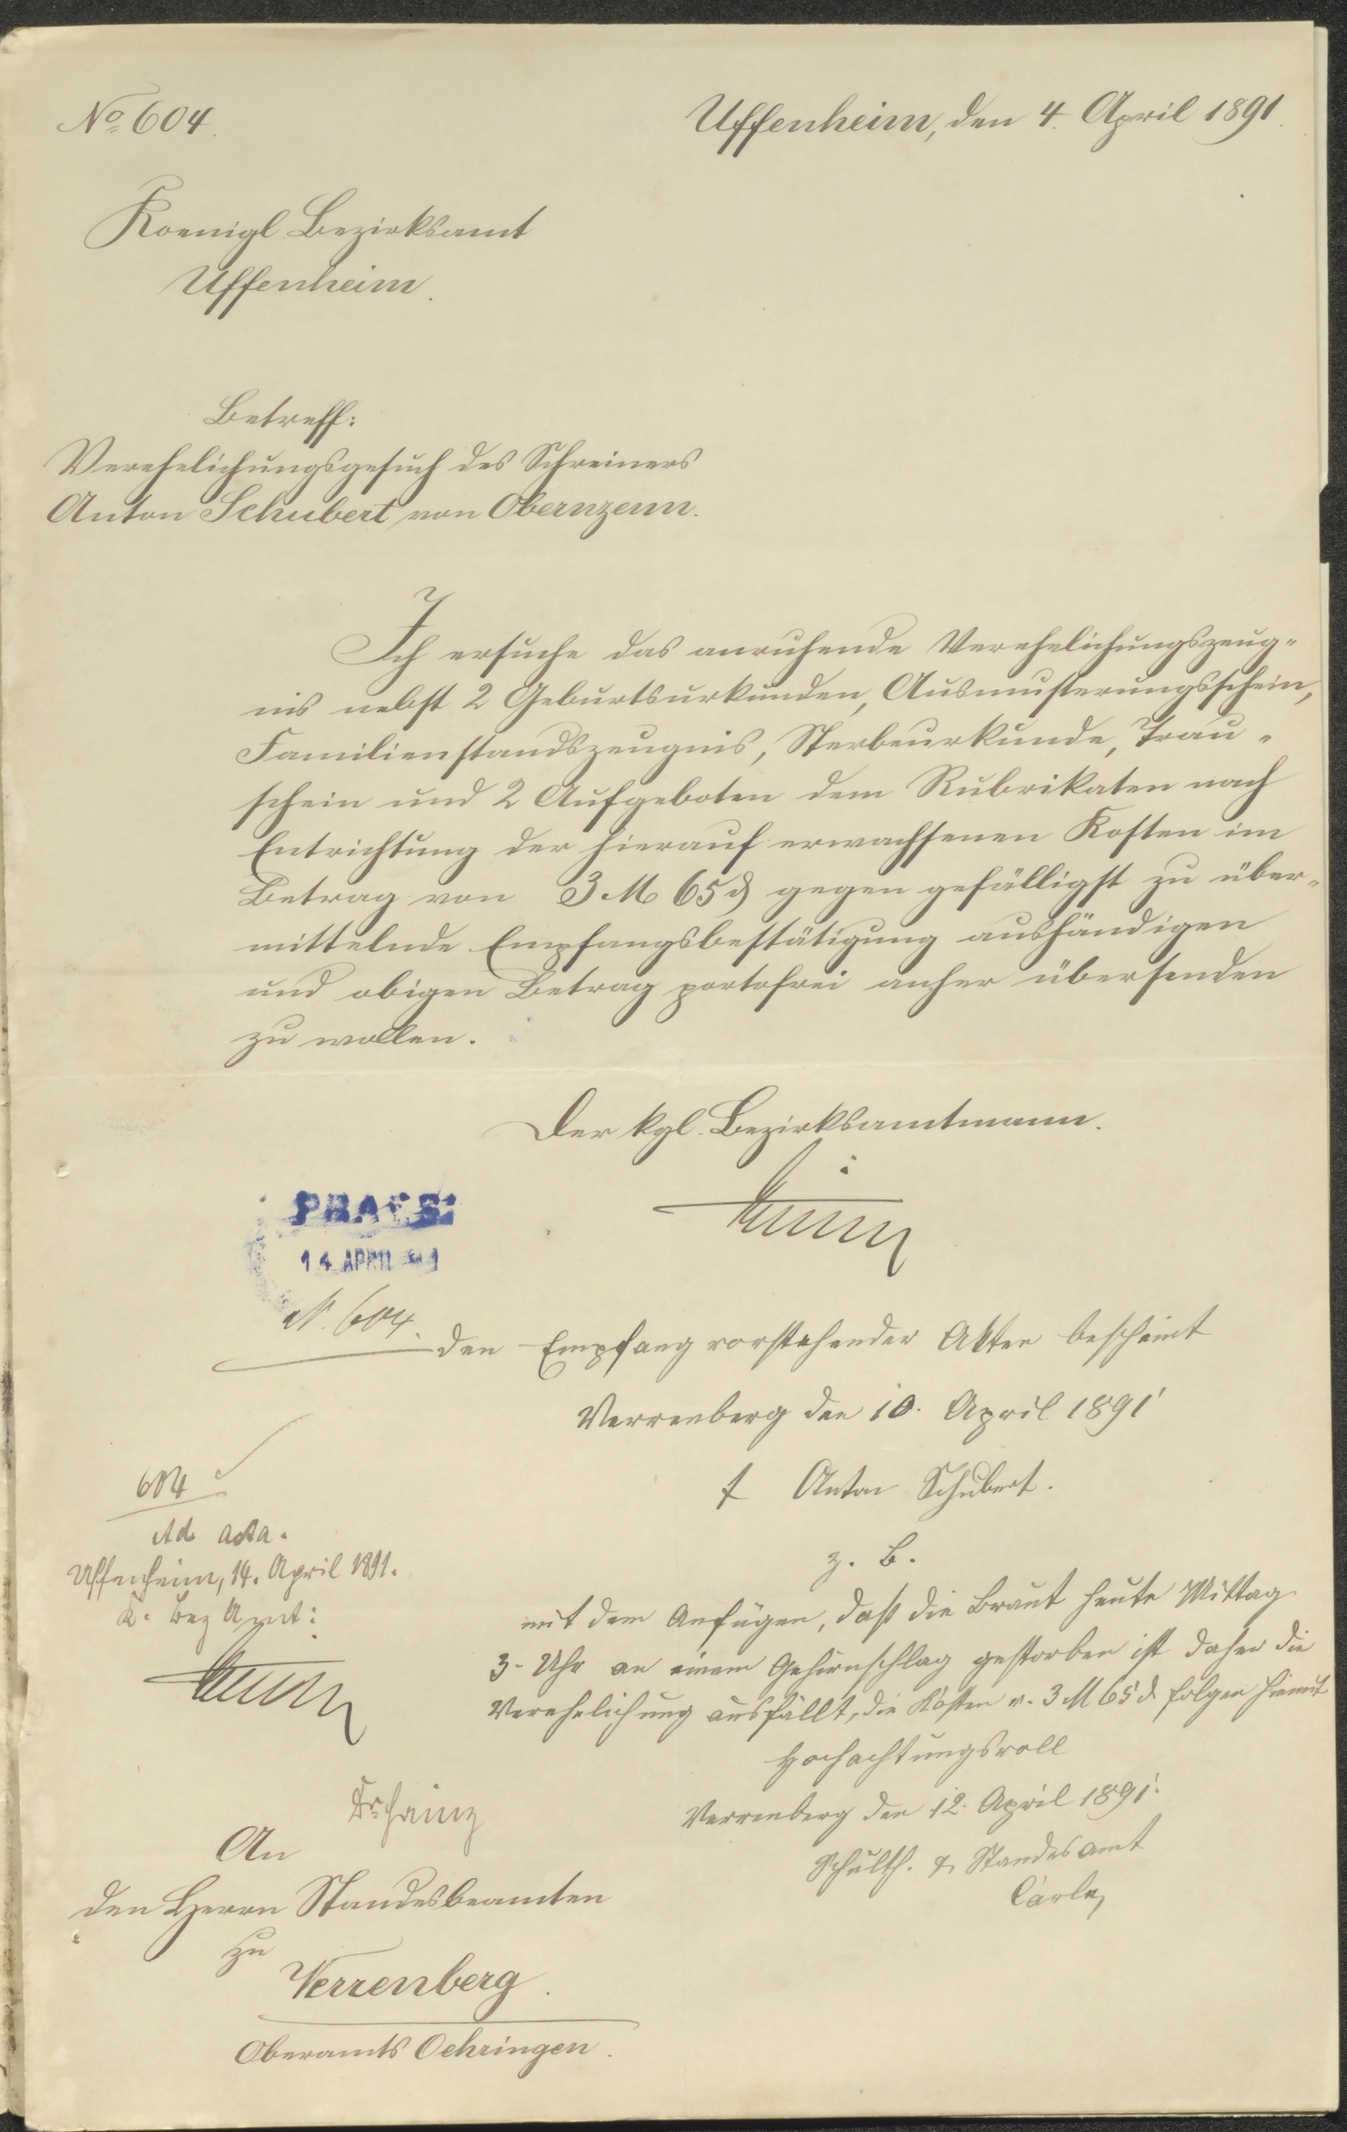 No 604.
Uffenheim, den 4. April 1891.
Koenigl Bezirksamt
Uffenheim.
Betreff:
Verehelichungsgesuch des Schreiners
Anton Schubert von Obernzenn.
Ich ersuche das anruhende Verehelichungszeug-
nis nebst 2 Geburtsurkunden, Ausmusterungsschein,
Familienstandszeugnis, Sterbeurkunde, Trau-
schein und 2 Aufgeboten dem Rubrikaten nach
Entrichtung der hierauf erwachsenen Kosten im
Betrag von 3 M 65 ₰ gegen gefälligst zu über-
mittelnde Empfangsbestätigung aushändigen
und obigen Betrag portofrei anher übersenden
zu wollen.
Der kgl. Bezirksamtmann.
PRAES:
14. APRIL 91
N. 604.
Den Empfang vorstehender Akten bescheint
Verrenberg den 10. April 1891
t Anton Schubert.
z. B.
mit dem Anfügen, daß die Braut heute Mittag
3 Uhr an einem Gehirnschlag gestorben ist daher die
Verehelichung ausfällt, die Kosten v. 3 M 65 ₰ folgen hiemit
Hochachtungsvoll
Verrenberg den 12. April 1891.
Schulth. & Standesamt
Carle
604
Ad acta.
Uffenheim, 14. April 1891.
K. Bez Amt:
An
den Herrn Standesbeamten
zu
Verrenberg.
Oberamts Oehringen.